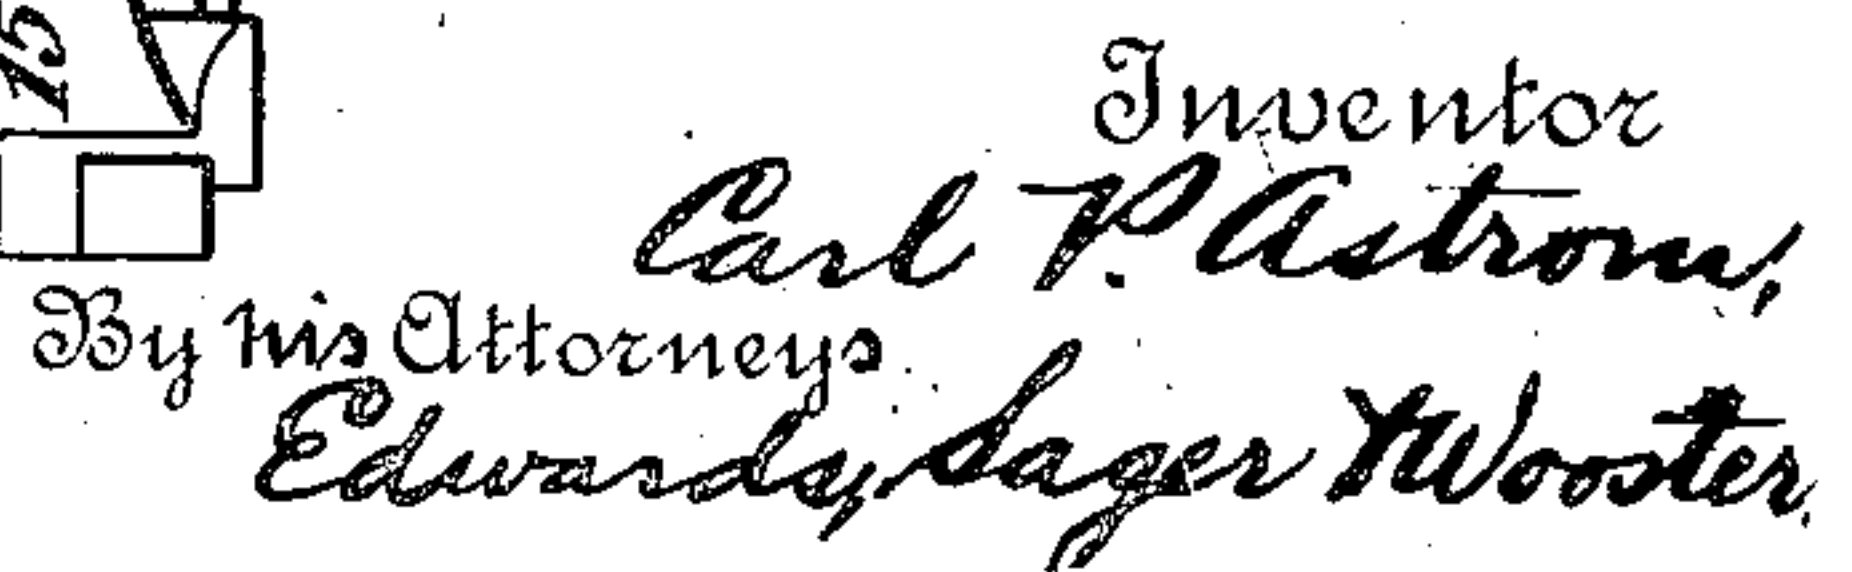 15
Inventor
Carl P. Astrom,
By his Attorneys
Edwards, Sager & Wooster.